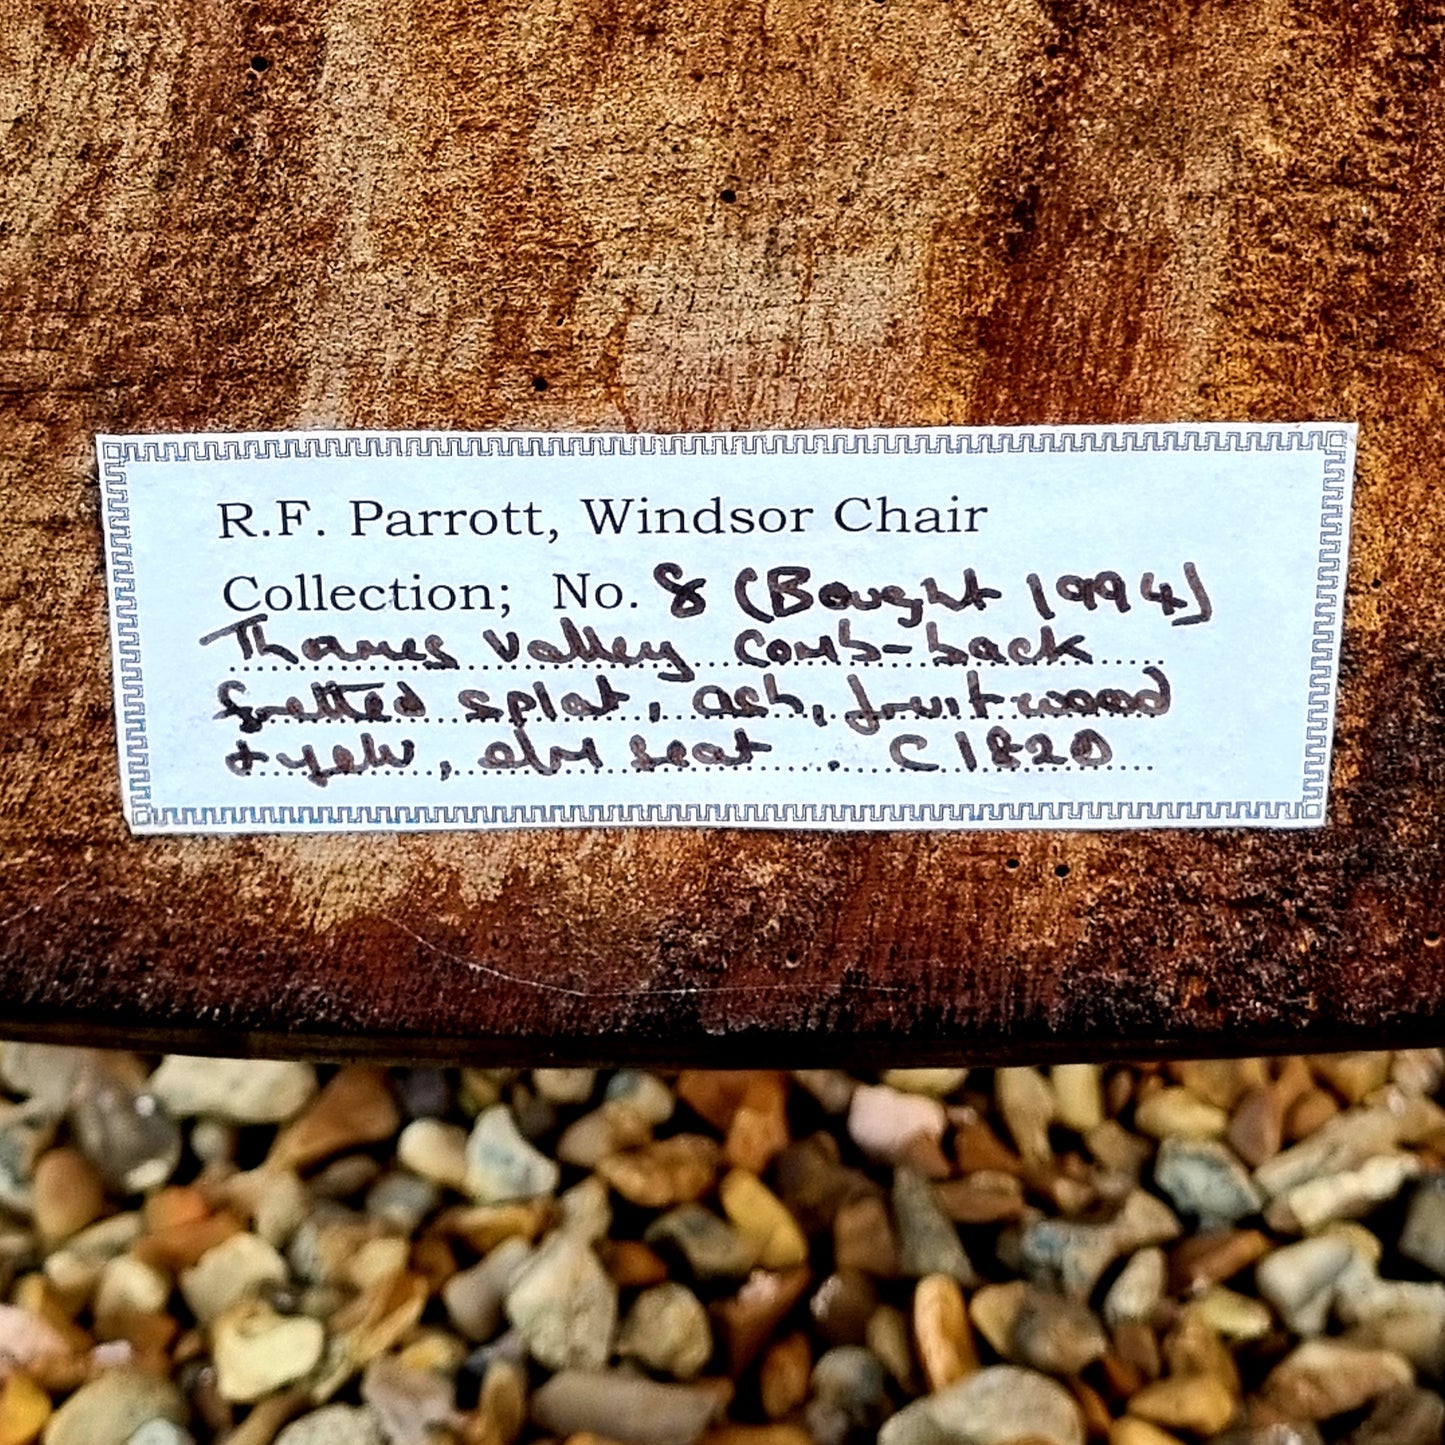 R.F. Parrott, Windsor Chair
Collection; No. 8 (Bought 1994)
Thames Valley comb-back
fretted splat, ash, fruitwood
+ yew, elm seat. C 1820